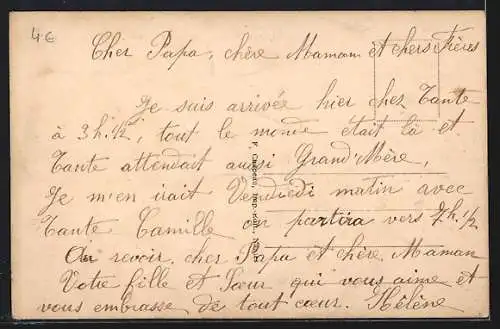 4€
Cher Papa, chère Maman et chers Frères
Je suis arrivée hier chez Tante
à 3h. 1/2, tout le monde était là et
Tante attendait aussi Grand'Mère,
Je m'en irait Vendredi matin avec
Tante Camille on partira vers 7h. 1/2
Au revoir cher Papa et chère Maman
Votre fille et Sœur qui vous aime et
vous embrasse de tout cœur. Hélène